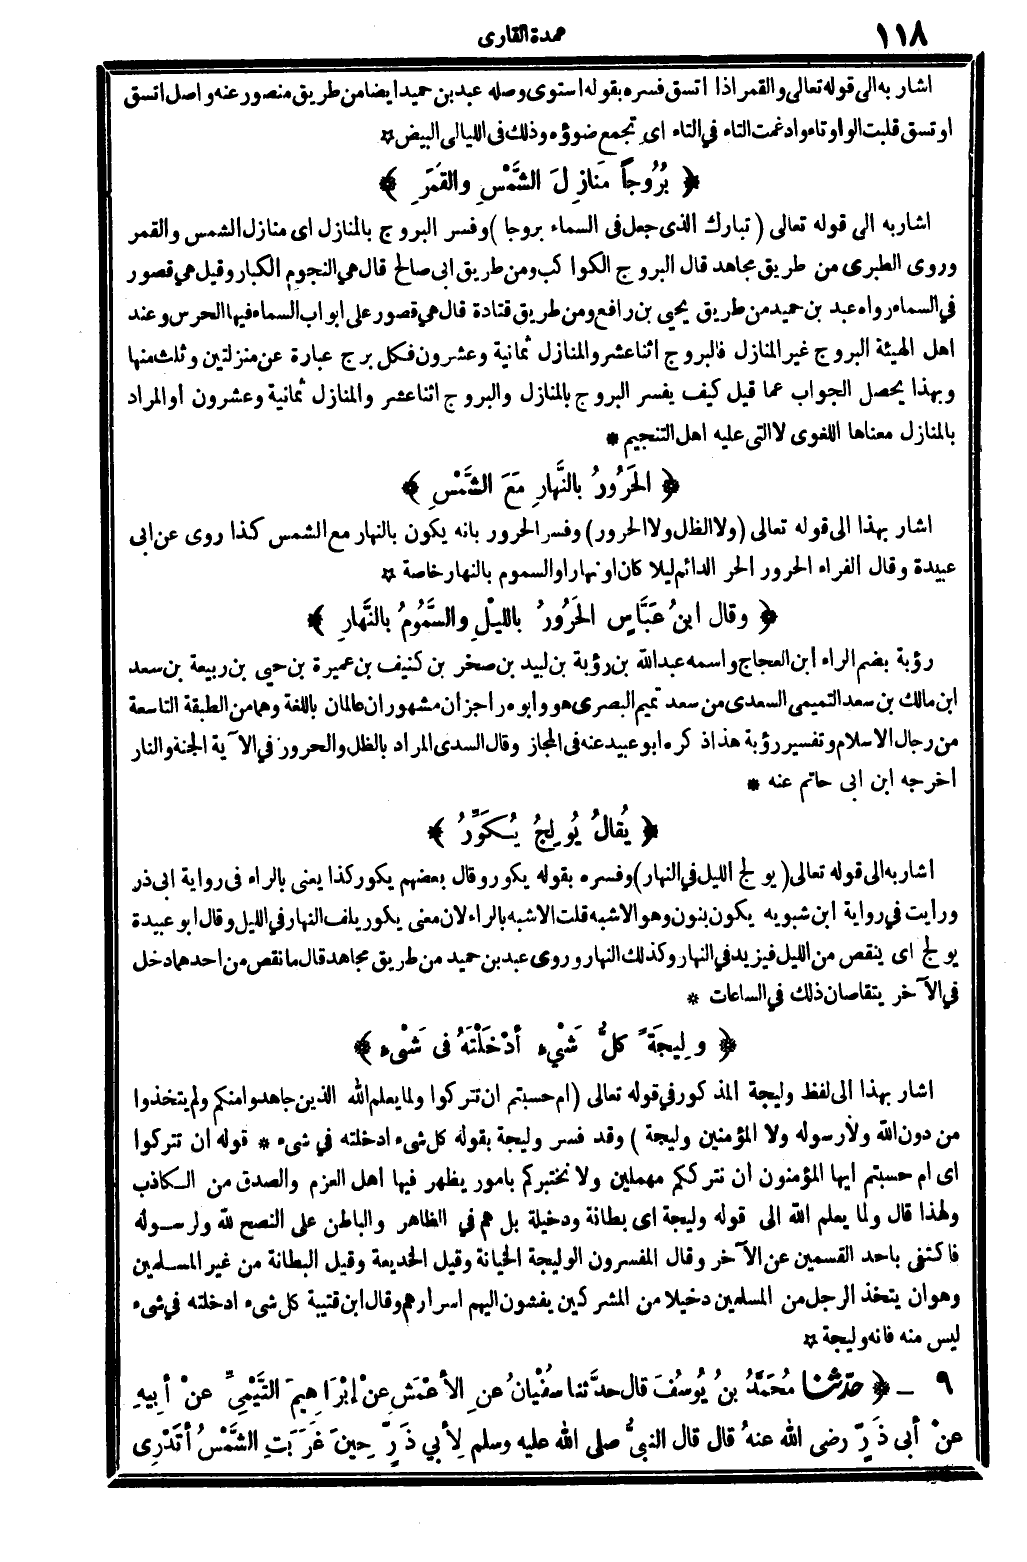 ١١٨
عمدة القارى
اشار به الى قوله تعالى والقمر اذا اتسق فسره بقوله استوى وصله عبد بن حميد ايضا من طريق منصور عنه واصل اتسق
اوتسق قلبت الواو تاء وادغمت التاء في التاء اى تجمع ضوؤه وذلك فى الليالى البيض ☆
﴿ بُرُوجاً مَنازِلَ الشَّمْسِ والقَمَرِ ﴾
اشار به الى قوله تعالى ( تبارك الذى جعل فى السماء بروجا ) وفسر البروج بالمنازل اى منازل الشمس والقمر
وروى الطبرى من طريق مجاهد قال البروج الكواكب ومن طريق ابى صالح قال هي النجوم الكبار وقيل هي قصور
في السماء رواه عبد بن حميد من طريق يحيى بن رافع ومن طريق قتادة قال هي قصور على ابواب السماء فيها الحرس وعند
اهل الهيئة البروج غير المنازل فالبروج اثنا عشر والمنازل ثمانية وعشرون فكل برج عبارة عن منزلتين وثلث منها
وبهذا يحصل الجواب عما قيل كيف يفسر البروج بالمنازل والبروج اثنا عشر والمنازل ثمانية وعشرون او المراد
بالمنازل معناها اللغوى لا التى عليه اهل التنجيم *
﴿ الحَرُورُ بالنَّهارِ مَعَ الشَّمْسِ ﴾
اشار بهذا الى قوله تعالى ( ولا الظل ولا الحرور ) وفسر الحرور بانه يكون بالنهار مع الشمس كذا روى عن ابى
عبيدة وقال الفراء الحرور الحر الدائم ليلا كان او نهارا والسموم بالنهار خاصة ☆
﴿ وقال ابنُ عَبَّاسٍ الحَرُورُ بالليْلِ والسَّمُومُ بالنَّهارِ ﴾
رؤبة بضم الراء ابن العجاج واسمه عبدالله بن رؤبة بن لبيد بن صخر بن كنيف بن عميرة بن حيى بن ربيعة بن سعد
ابن مالك بن سعد التميمى السعدى من سعد تميم البصرى هو وابوه راجزان مشهوران عالمان باللغة وهما من الطبقة التاسعة
من رجال الاسلام وتفسير رؤبة هذا ذكره ابو عبيد عنه فى المجاز وقال السدى المراد بالظل والحرور في الآية الجنة والنار
اخرجه ابن ابى حاتم عنه *
﴿ يُقالُ يُولِجُ يُكَوِّرُ ﴾
اشار به الى قوله تعالى ( يولج الليل في النهار ) وفسره بقوله يكور وقال بعضهم يكور كذا يعنى بالراء فى رواية ابى ذر
ورأيت في رواية ابن شبويه يكون بنون وهو الاشبه قلت الاشبه بالراء لان معنى يكور يلف النهار في الليل وقال ابو عبيدة
يولج اى ينقص من الليل فيزيد في النهار وكذلك النهار وروى عبد بن حميد من طريق مجاهد قال ما نقص من احدهما دخل
في الآخر يتقاصان ذلك في الساعات *
﴿ ولِيجَةً كلُّ شَيْءٍ أدْخَلْتَهُ فى شَىْءٍ ﴾
اشار بهذا الى لفظ وليجة المذكور في قوله تعالى ( ام حسبتم ان تتركوا ولما يعلم الله الذين جاهدوا منكم ولم يتخذوا
من دون الله ولا رسوله ولا المؤمنين وليجة ) وقد فسر وليجة بقوله كل شىء ادخلته في شىء * قوله ان تتركوا
اى ام حسبتم ايها المؤمنون ان نترككم مهملين ولا نختبركم بامور يظهر فيها اهل العزم والصدق من الكاذب
ولهذا قال ولما يعلم الله الى قوله وليجة اى بطانة ودخيلة بل هم في الظاهر والباطن على النصح لله ولرسوله
فاكتفى باحد القسمين عن الآخر وقال المفسرون الوليجة الخيانة وقيل الخديعة وقيل البطانة من غير المسلمين
وهو ان يتخذ الرجل من المسلمين دخيلا من المشركين يفشون اليهم اسرارهم وقال ابن قتيبة كل شىء ادخلته في شىء
ليس منه فانه وليجة ☆
٩ ـ ﴿ حدّثنا مُحَمَّدُ بنُ يُوسُفَ قال حدَّثنا سفْيانُ عنِ الأعْمَشِ عنْ إبْرَاهِيمَ التَّيْمِيِّ عنْ أبِيهِ
عنْ أبى ذَرٍّ رضى الله عنهُ قال قال النبىُّ صلى الله عليه وسلم لِأبي ذَرٍّ حِينَ غَرَبَتِ الشَّمْسُ أتَدْرِى